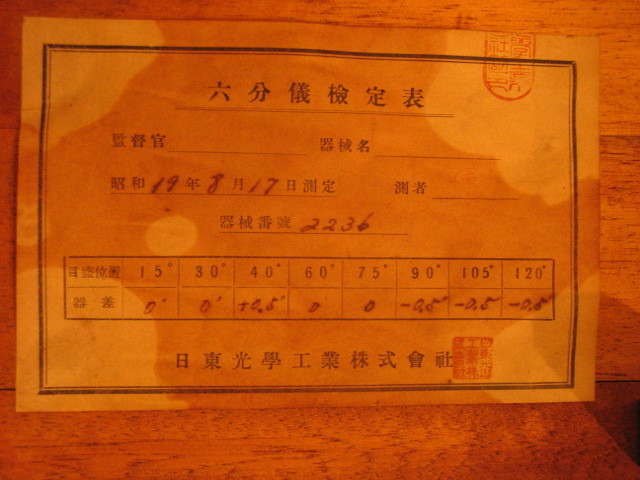 六分儀檢定表
監督官 器械名
昭和19年8月17日測定 測者
器械番號 2236
目盛位置 15° 30° 40° 60° 75° 90° 105° 120°
器差 0' 0' +0.5' 0 0 -0.5' -0.5 -0.5'
日東光學工業株式會社